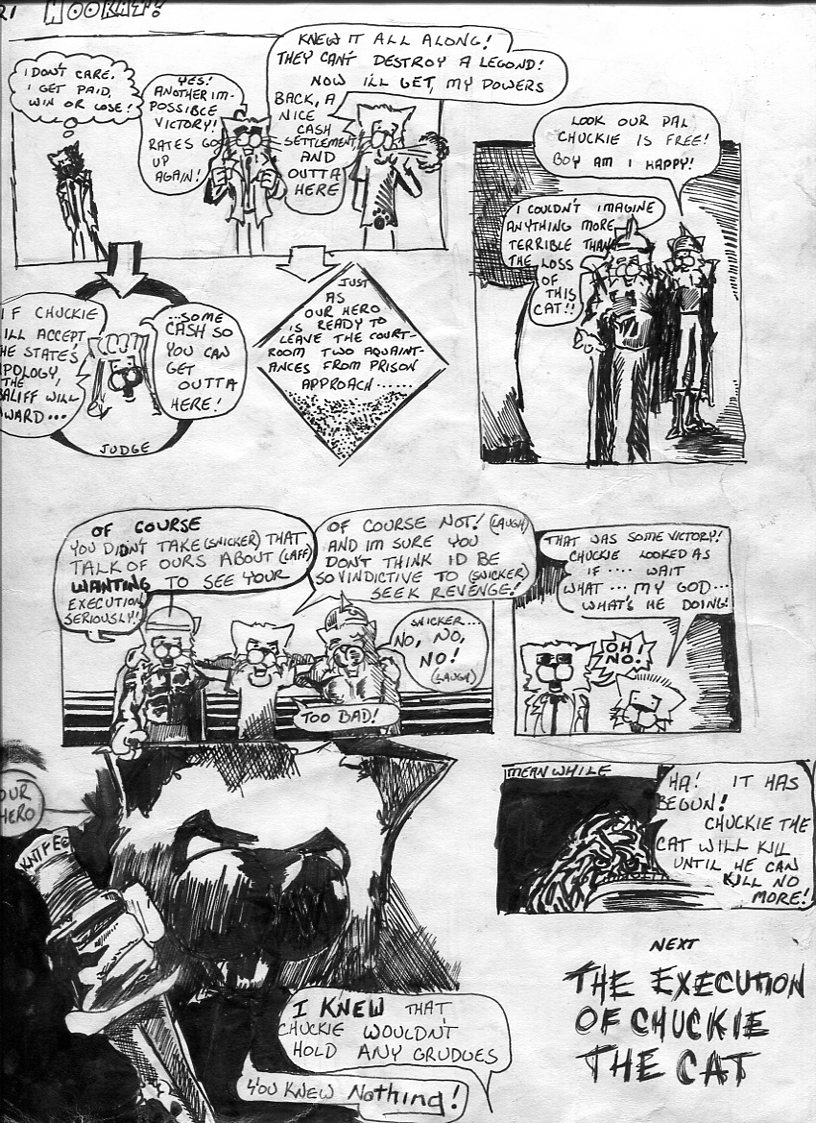 21 HOORAY!
I DON'T CARE.
I GET PAID,
WIN OR LOSE!
YES!
ANOTHER IM-
POSSIBLE
VICTORY!
RATES GO
UP
AGAIN!
KNEW IT ALL ALONG!
THEY CAN'T DESTROY A LEGOND!
NOW I'LL GET, MY POWERS
BACK, A
NICE
CASH
SETTLEMENT,
AND
OUTTA
HERE
LOOK OUR PAL
CHUCKIE IS FREE!
BOY AM I HAPPY!
I COULDN'T IMAGINE
ANYTHING MORE
TERRIBLE THAN
THE LOSS
OF
THIS
CAT!!
IF CHUCKIE
ILL ACCEPT
HE STATE'S
POLOGY,
THE
BALIFF WILL
WARD...
...SOME
CASH SO
YOU CAN
GET
OUTTA
HERE!
JUDGE
JUST
AS
OUR HERO
IS READY TO
LEAVE THE COURT-
ROOM TWO AQUAINT-
ANCES FROM PRISON
APPROACH......
OF COURSE
YOU DIDN'T TAKE (SNICKER) THAT
TALK OF OURS ABOUT (LAFF)
WANTING TO SEE YOUR
EXECUTION
SERIOUSLY!
OF COURSE NOT! (LAUGH)
AND IM SURE YOU
DON'T THINK I'D BE
SO VINDICTIVE TO (SNICKER)
SEEK REVENGE!
SNICKER...
NO, NO,
NO!
(LAUGH)
TOO BAD!
THAT WAS SOME VICTORY!
CHUCKIE LOOKED AS
IF .... WAIT
WHAT... MY GOD...
WHAT'S HE DOING!
OH!
NO.
OUR
HERO
KNIFE
MEANWHILE
HA! IT HAS
BEGUN!
CHUCKIE THE
CAT WILL KILL
UNTIL HE CAN
KILL NO
MORE!
I KNEW THAT
CHUCKIE WOULDN'T
HOLD ANY GRUDGES
YOU KNEW NOTHING!
NEXT
THE EXECUTION
OF CHUCKIE
THE CAT